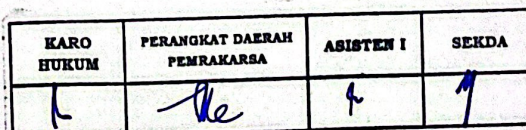 KARO HUKUM
PERANGKAT DAERAH PEMRAKARSA
ASISTEN I
SEKDA